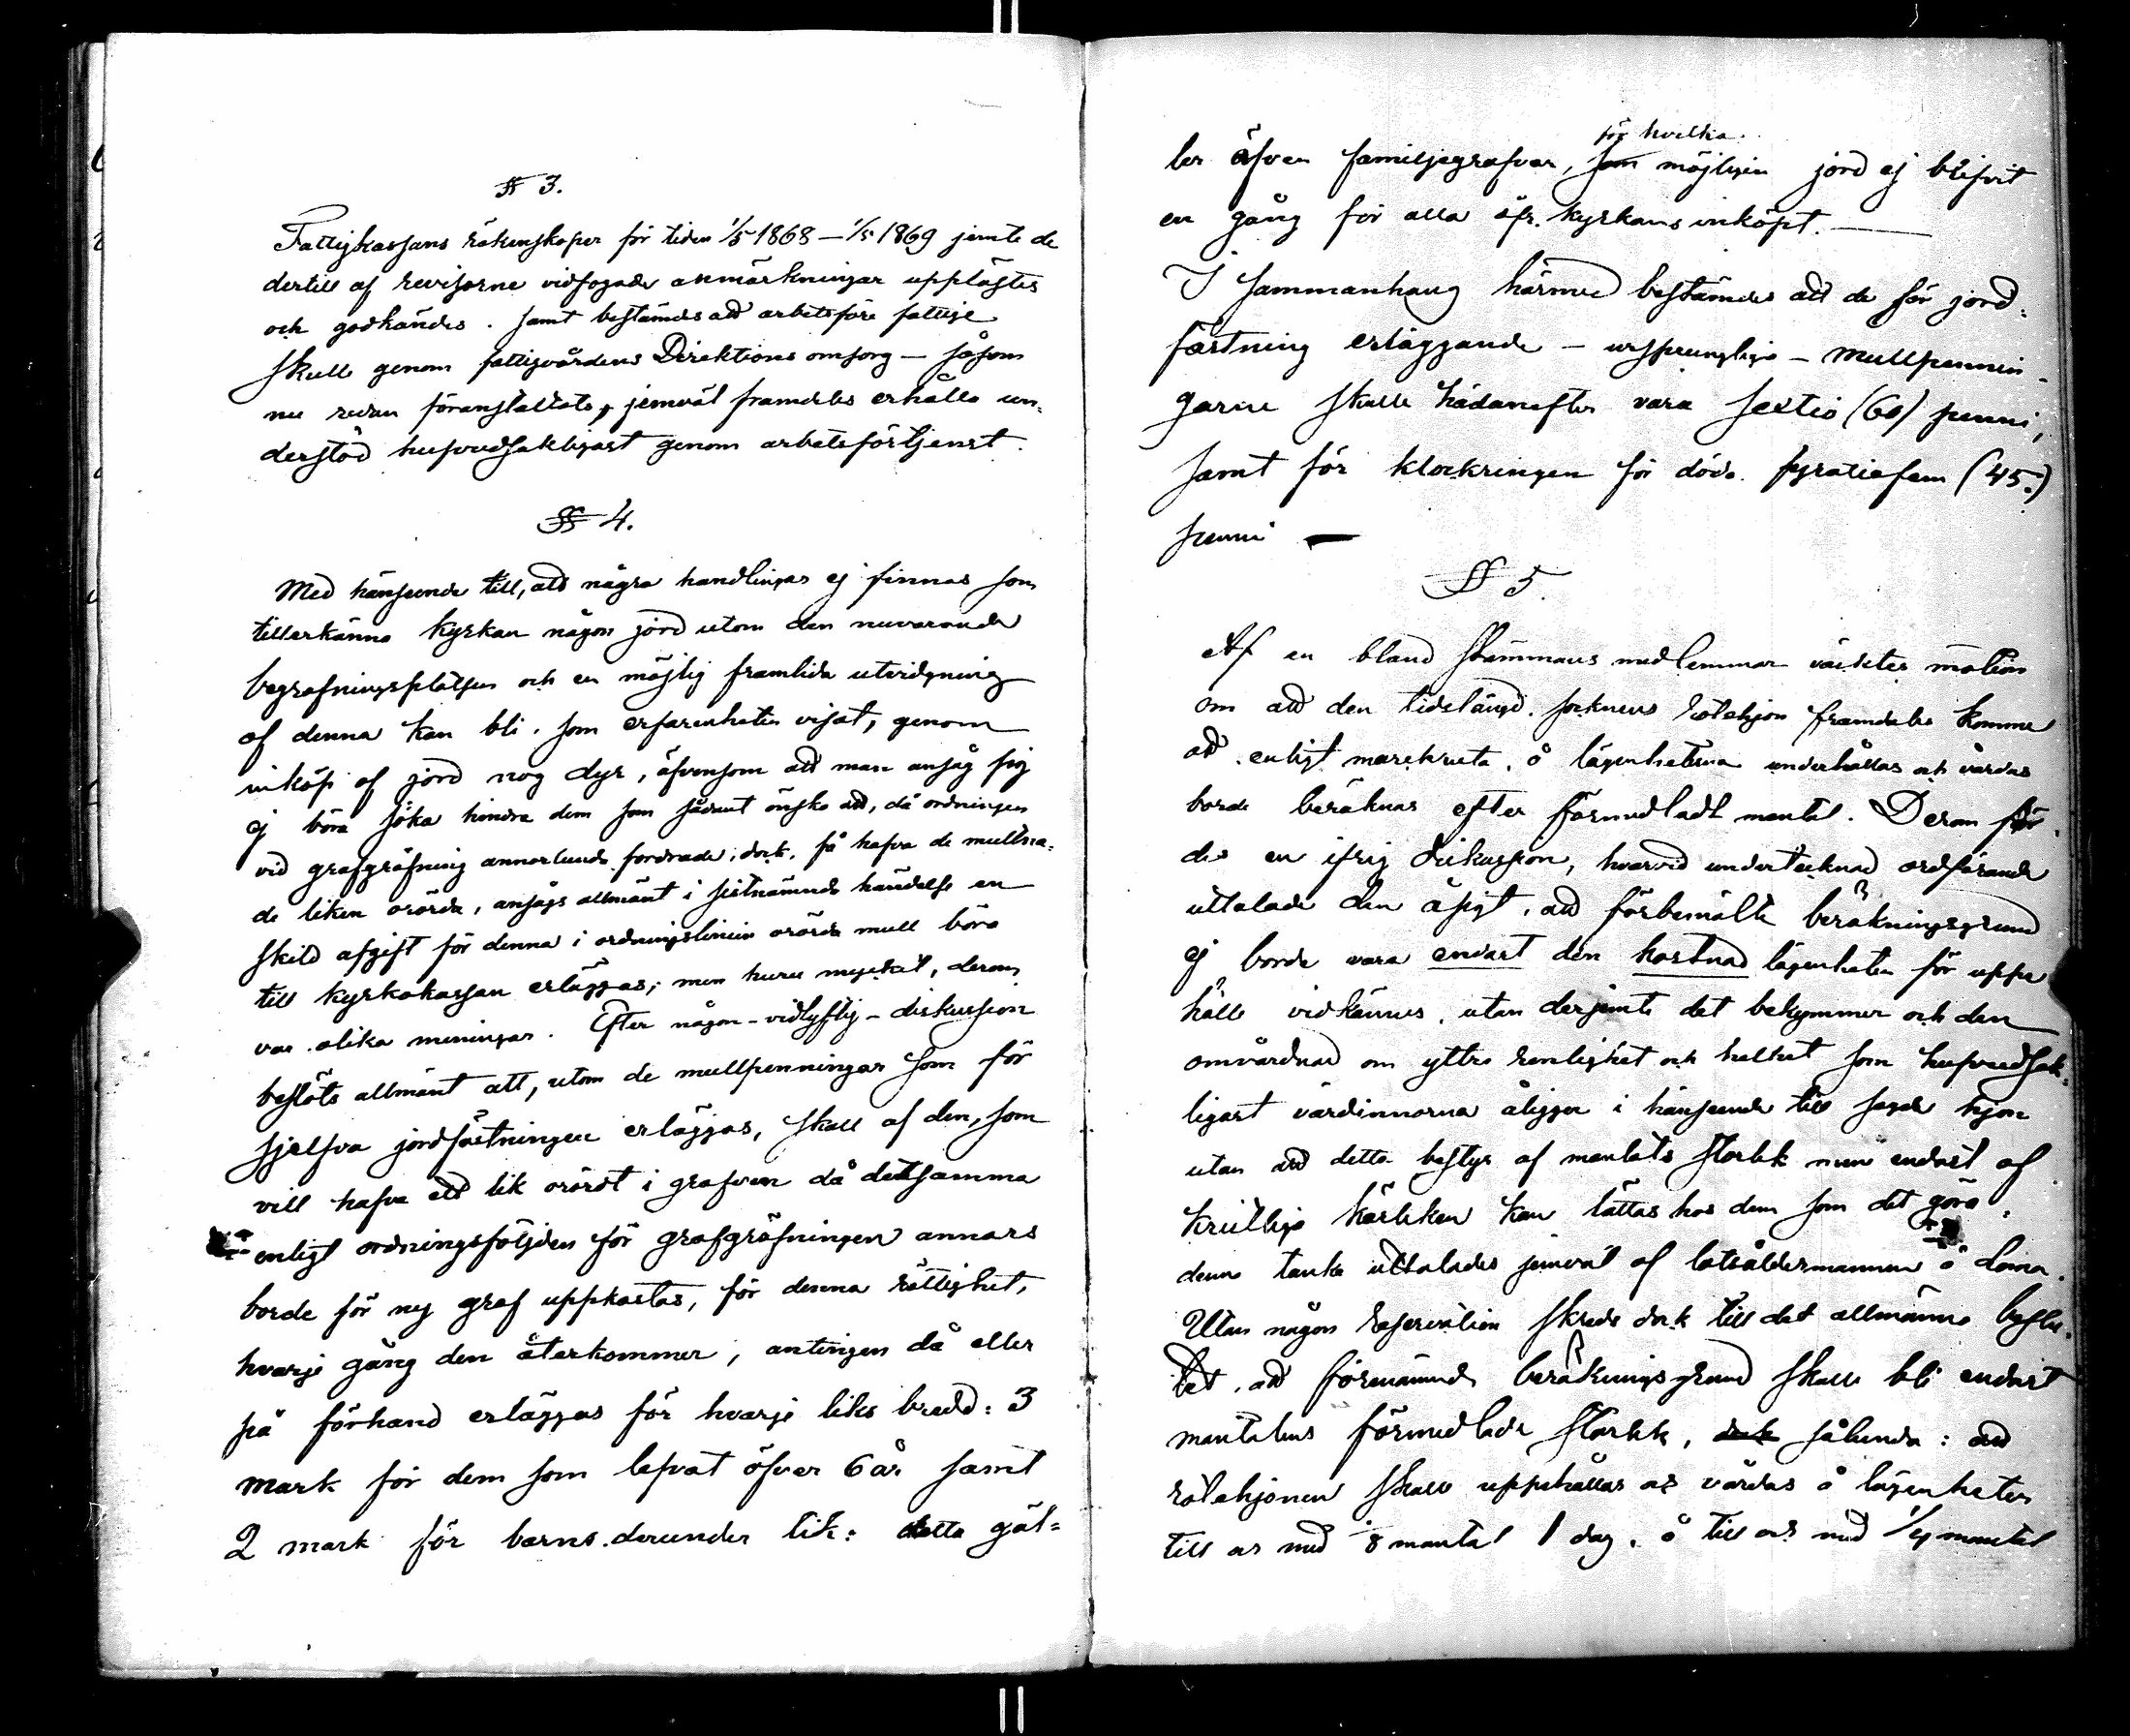 § 3.
Fattigkassans räkenskaper för tiden 1/5 1868 – 1/5 1869 jemte de
dertill af revisorne vidfogade anmärkningar upplästes
och godkändes. samt bestämdes att arbetsföre fattige
skulle genom fattigvårdens Direktions omsorg – såsom
nu redan föranstaltats, jemväl framdeles erhålla un-
derstöd hufvudsakligast genom arbetsförtjenst.
§ 4.
Med hänseende till, att några handlingar ej finnas som
tillerkänna Kyrkan någon jord utom den nuvarande
begrafningsplatsen och en möjlig framtida utvidgning
af denna kan bli. som erfarenheten visat, genom
inköp af jord nog dyr, äfvensom att man ansåg sig
ej böra söka hindra dem som sådant önska att, då ordningen
vid grafgräfning annorlunda fordrade, dock, få hafva de mullna-
de liken orörda, ansågs allmänt i sistnämnde händelse en
skild afgift för denna i ordningslinien orörda mull böra
till Kyrkokassan erläggas; men huru mycket, derom
var olika meningar. Efter någon – vidlyftig – diskussion
beslöts allmänt att, utom de mullpenningar som för
sjelfva jordfästningen erläggas, skall af den, som
vill hafva ett lik orördt i grafven då detsamma
enligt ordningsföljden för grafgräfningen annars
borde för ny graf uppkastas, för denna rättighet,
hvarje gång den återkommer, antingen då eller
på förhand erläggas för hvarje liks bredd: 3
mark för dem som lefvat öfver 6 år samt
2 mark för barns derunder lik: detta gäl=
för hvilka
ler äfven familjegrafvar, som möjligen jord ej blifvit
en gång för alla af Kyrkans inköpt.
I sammanhang härmed bestämdes att de för jord-
fästning erläggande – ursprungliga – mullpennin-
garne skulle hädanefter vara sextio (60) penni,
samt för klockringen för döda fyratiofem (45.)
penni —
§ 5.
Af en bland stämmans medlemmar väcktes motion
om att den tidslängd socknens rotehjon framdeles komme
att enligt å lägenheterna underhållas och vårdas
borde beräknas efter förmedladt mantal. Derom för-
des en ifrig diskussion, hvarvid undertecknad ordförande
uttalade den åsigt, att förbemälte beräkningsgrund
ej borde vara endast den kostnad lägenheten för uppe-
hälle vidkännes, utan derjemte det bekymmer och den
omvårdnad om yttre renlighet och helhet som hufvudsak-
ligast värdinnorna åligger i hänseende till sagde hjon
utan att detta bestyr af mantalets storlek men endast af
kristliga kärleken kan lättas hos dem som det göra.
denna tanke uttalades jemväl af rotåldermannen å Loma.
Utan någon reservation skreds dock till det allmänna beslu-
tet, att förenämnde beräkningsgrund skulle bli endast
mantalens förmedlade storlek, dock sålunda: att
rotehjonen skall uppehållas och vårdas å lägenheten
till och med 1/8 mantal 1 dag, å till och med 1/4 mantal